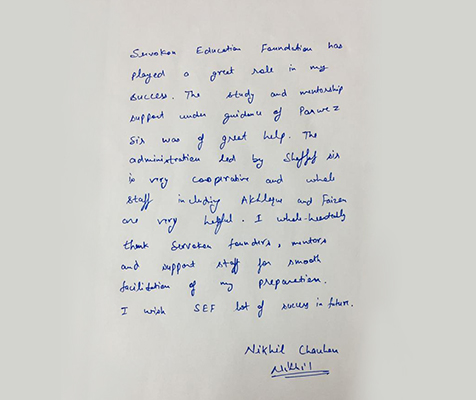 Servokon Education Foundation has
played a great role in my
success. The study and mentorship
support under guidance of Parwez
Sir was of great help. The
administration led by sir
is very cooperative and whole
staff including Akhleque and Faizan
are very helpful. I whole-heartedly
thank Servokon founders, mentors
and support staff for smooth
facilitation of my preparation.
I wish SEF lot of success in future.
Nikhil Chauhan
Nikhil